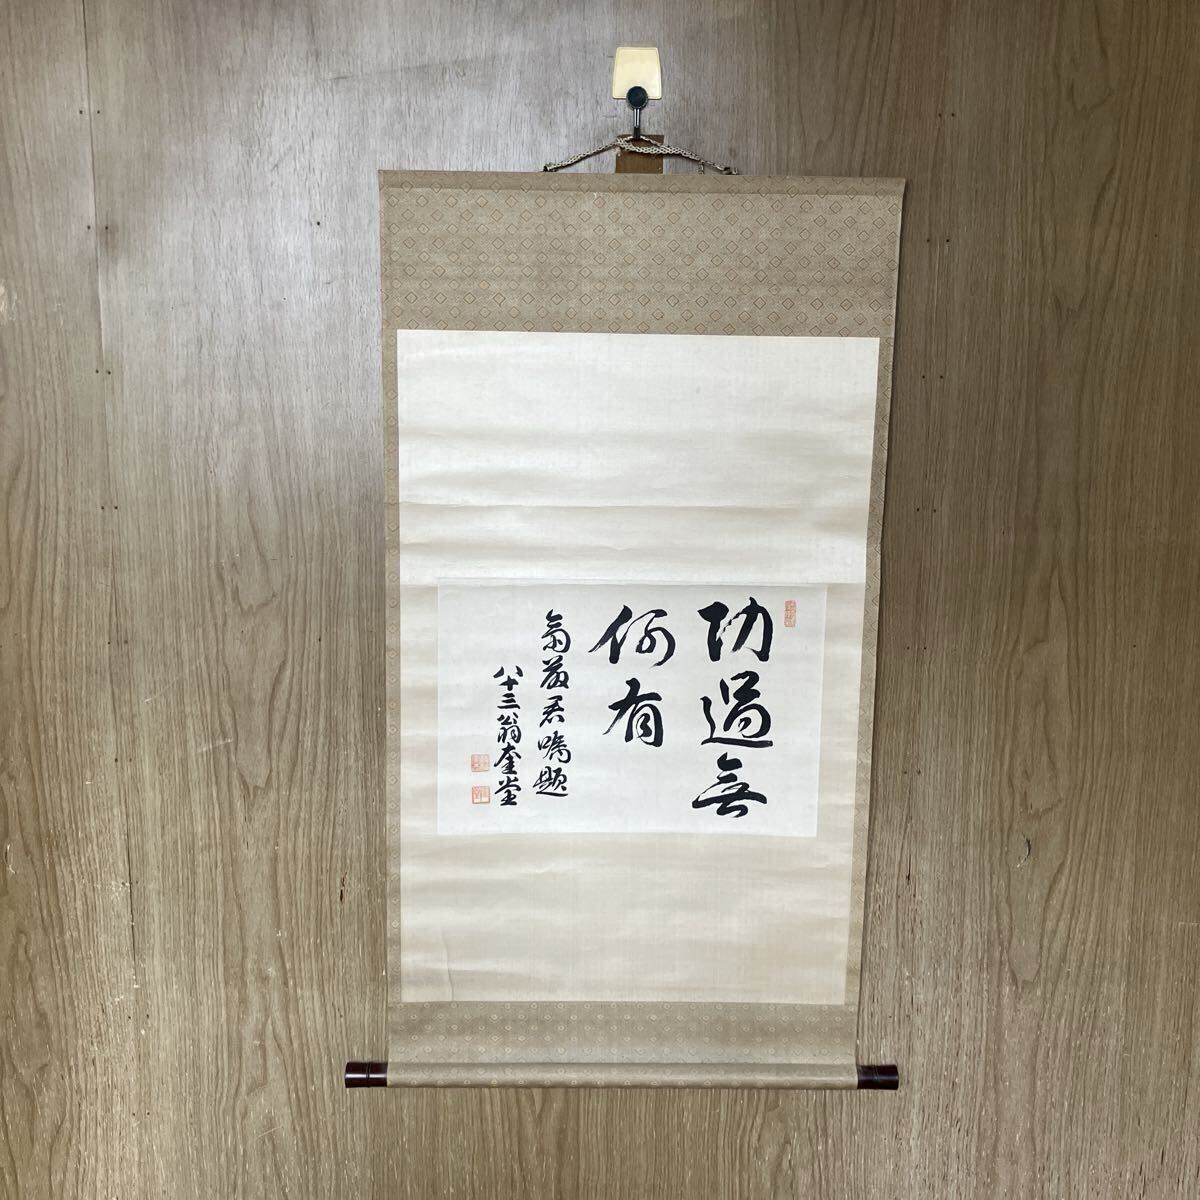 功過無
何有
翁嚴君嘱題
八十三翁奎堂